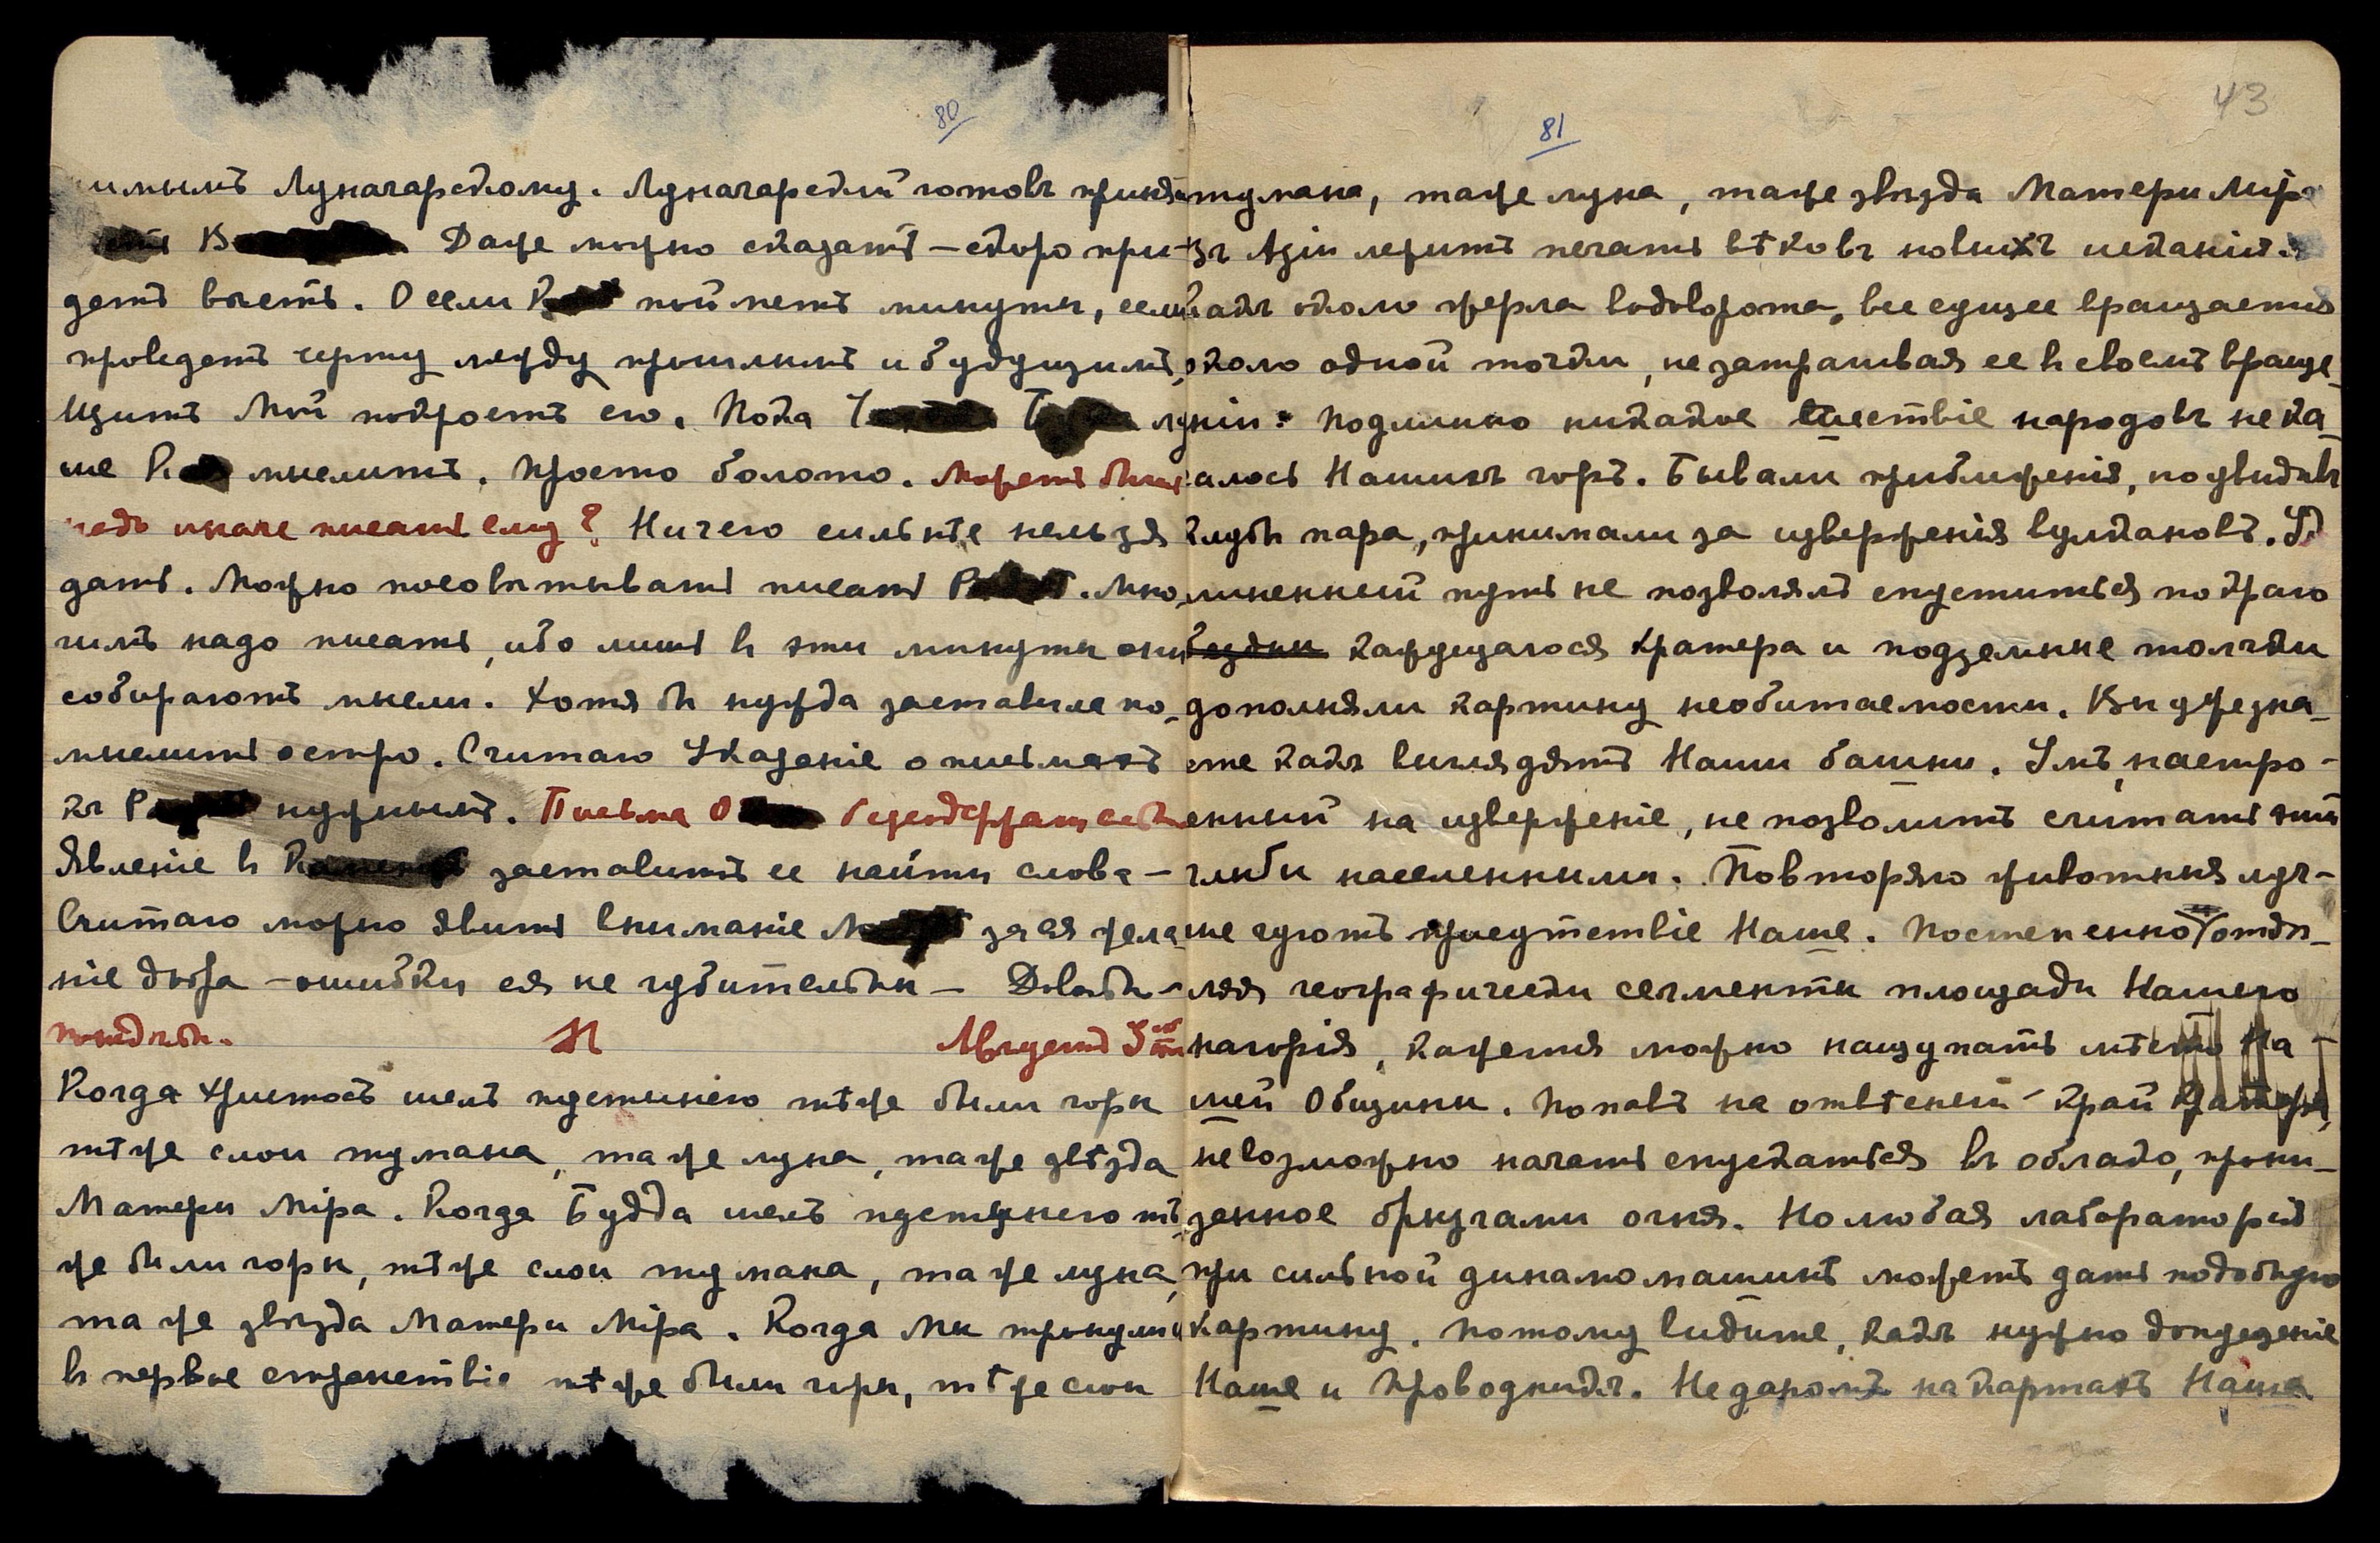 80
Луначарскому. Луначарскій готовъ
Даже можно сказать — скоро при-
детъ вѣсть. О если пойметъ минуты, если
проведетъ черту между прошлымъ и будущимъ,
Щитъ Мой покроетъ его. Пока
ше мыслитъ. Просто болото. Можетъ быть
надо иначе писать ему? Ничего сильнѣе нельзя
дать. Можно посовѣтывать писать Мно-
гимъ надо писать, ибо лишь в эти минуты они
собираютъ мысли. Хотя бы нужда заставила по-
мыслить остро. Считаю Указаніе о письмахъ
къ нужнымъ. Письма О
Явленіе в заставитъ ее найти слова —
Считаю можно явить вниманіе за ея жела-
ніе добра — ошибки ея не губительны — Довольно —
Августъ
Когда Христосъ шелъ пустынею тѣ же были горы
тѣ же слои тумана, та же луна, та же звѣзда
Матери Міра. Когда Будда шелъ пустынею тѣ
же были горы, тѣ же слои тумана, та же луна,
та же звѣзда Матери Міра. Когда Мы тронулись
в первое странствіе тѣ же были горы, тѣ же слои
43
81
тумана, та же луна, та же звѣзда Матери Міра
Азіи лежитъ печать вѣковъ новыхъ исканій.
какъ около жерла водоворота, все сущее вращается
около одной точки, не затрагивая ее в своемъ враще-
ніи. Подлинно никакое шествіе народовъ не ка-
салось Нашихъ горъ. Бывали приближенія, но увидавъ
клубы пара, принимали за изверженія вулкановъ. Уд
линенный путь не позволялъ спуститься по краю
бездны кажущагося кратера и подземные толчки
дополняли картину необитаемости. Вы уже зна-
ете какъ выглядятъ Наши башни. Умъ, настро-
енный на изверженіе, не позволитъ считать эти
глыбы населенными. Повторяю животныя луч-
ше чуютъ присутствіе Наше. Постепенно отдѣ-
ляя географически сегменты площади Нашего
нагорія, кажется можно нащупать мѣсто На-
шей Общины. Попавъ на отвѣсный край кратера,
невозможно начать спускаться въ облако, прони-
занное брызгами огня. Но любая лабораторія
при сильной динамомашинѣ можетъ дать подобную
картину. Потому видите, какъ нужно допущеніе
Наше и проводникъ. Недаромъ на картахъ Наше